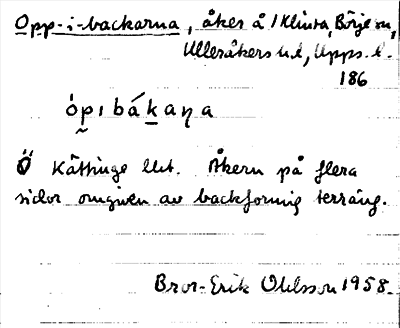 Opp-i-backarna, åker å 1 Klinta, Börje sn,
Ulleråkers hd, Upps. l.
186
ópıbákaɳa
Ö Kättinge llt. Åkern på flera
sidor omgiven av backformig terräng.
Bror-Erik Ohlsson 1958.